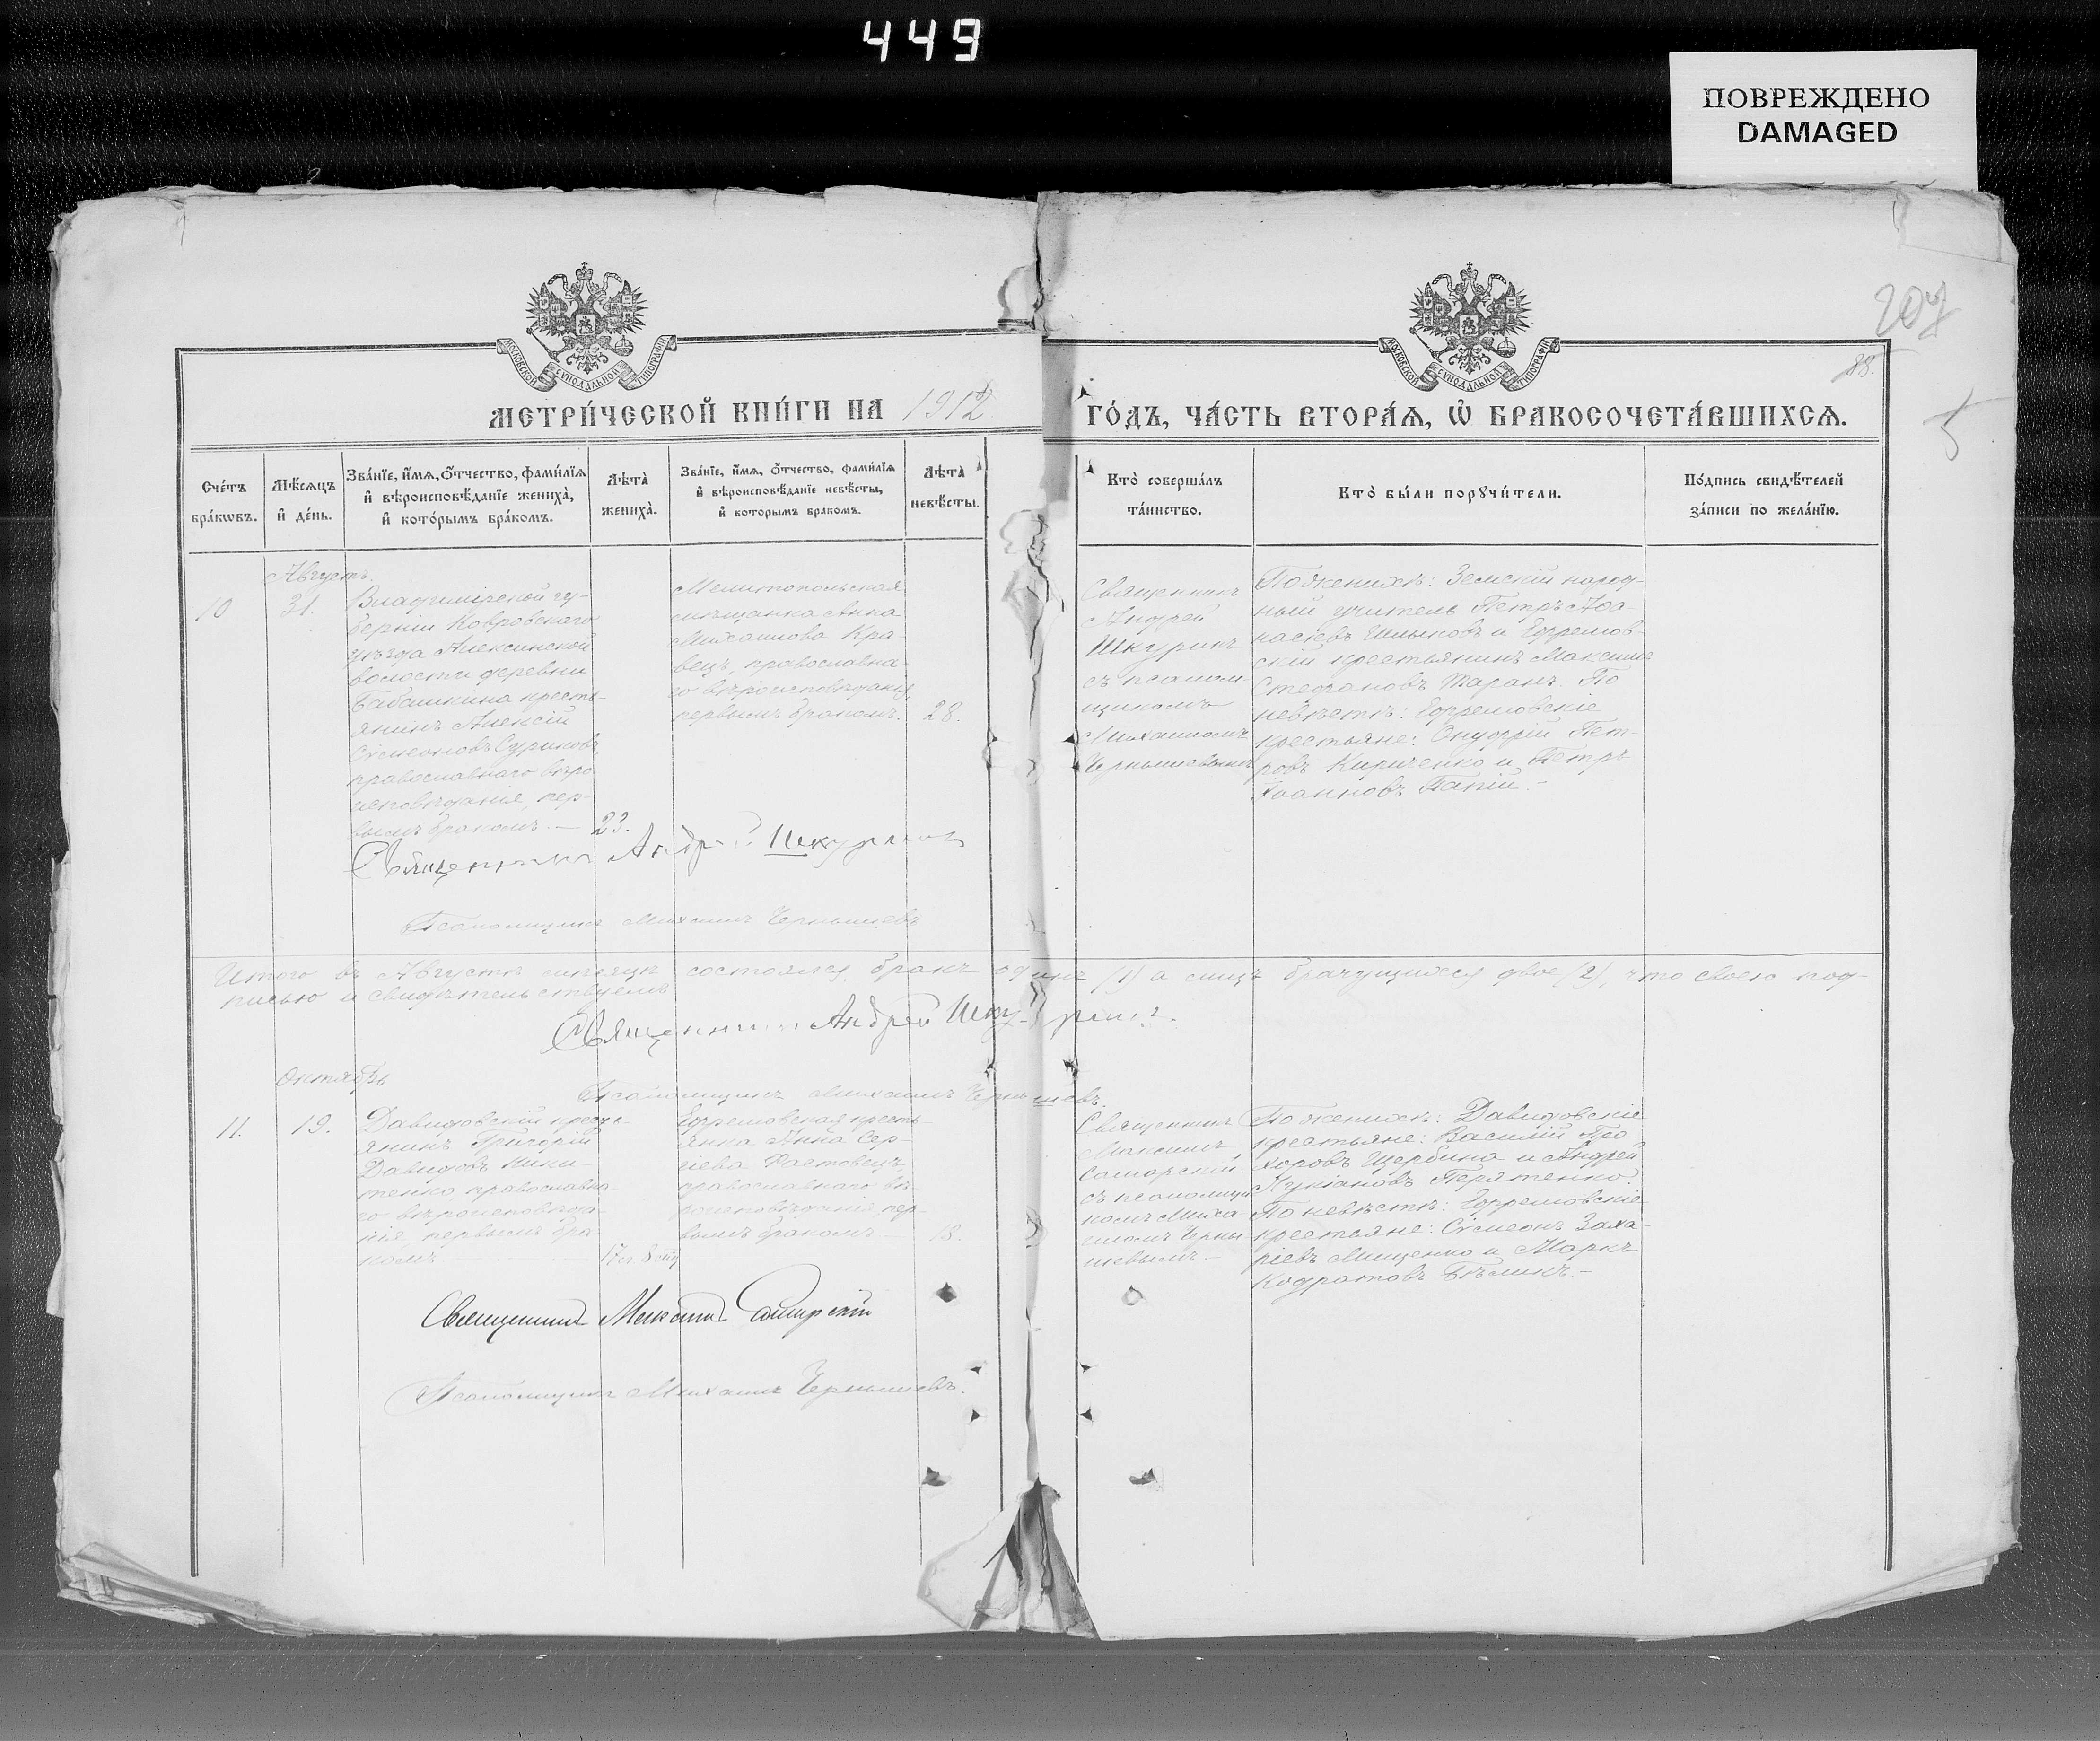 449
ПОВРЕЖДЕНО
DAMAGED
207
МОСКОВСКОЙ СѴНОДАЛЬНОЙ ТИПОГРАФІИ
МОСКОВСКОЙ СѴНОДАЛЬНОЙ ТИПОГРАФІИ
МЕТРИ́ЧЕСКОЙ КНИ́ГИ НА 1912
ГО́ДЪ, ЧА́СТЬ ВТОРА́Я, Ѡ БРАКОСОЧЕТА́ВШИХСЯ.
5
Сче́тъ
бра́кωвъ.
Мѣ́сяцъ
и҆ де́нь.
Зва́нїе, и҆́мя, ѻ҆́тчество, фами́лїя
и҆ вѣроисповѣ́данїе жениха̀,
и҆ кото́рымъ бра́комъ.
Лѣта̀
жениха̀.
Зва́нїе, и҆́мя, ѻ҆́тчество, фами́лїя
и҆ вѣроисповѣ́данїе невѣ́сты,
и҆ которымъ бракомъ.
Лѣта̀
невѣ́сты.
Кто̀ соверша́лъ
та́инство.
Кто̀ бы́ли порꙋчи́тели.
По́дпись свидѣ́телей
за́писи по жела́нїю.
Августъ.
10
31.
Владимірской гу-
берніи Ковровскаго
уѣзда Алексинской
волости деревни
Бабашкина кресть-
янинъ Алексій
Сѵмеоновъ Суриковъ
православнаго вѣро
исповѣданія, пер-
вымъ бракомъ. —
23.
Мелитопольская
мѣщанка Анна
Михаилова Кра-
вецъ, православна-
го вѣроисповѣданія,
первымъ бракомъ.
28.
Священникъ
Андрей
Шкуринъ
съ псалом
щикомъ
Михаиломъ
Чернышевымъ
По женихѣ: Земскій народ-
ный учитель Петръ Аѳа-
насіевъ и Ефремов-
скій крестьянинъ Максимъ
Стефановъ Таранъ. По
невѣстѣ: Ефремовскіе
крестьяне: Онуфрій Пет-
ровъ Кириченко и Петръ
Іоанновъ Папій. —
Священникъ Андрей Шкуринъ
Псаломщикъ Михаилъ Чернышевъ
Итого въ Августѣ мѣсяцѣ состоялся бракъ одинъ (1) а лицъ брачущихся двое (2), что своею под-
писью и свидѣтельствуемъ
Священникъ Андрей Шкуринъ.
Псаломщикъ Михаилъ Чернышевъ.
Октябрь
11.
19.
Давидовскій кресть-
янинъ Григорій
Давидовъ Ники-
тенко, православна-
го вѣроисповѣда-
нія, первымъ бра-
комъ
Ефремовская кресть-
янка Анна Сер-
гіева Фастовецъ,
православнаго вѣ-
роисповѣданія, пер-
вымъ бракомъ —
18.
Священникъ
Максимъ
Самарскій
съ псаломщи
комъ Миха
иломъ Черны
шевымъ —
По женихѣ: Давидовскіе
крестьяне: Василій Про-
хоровъ Щербина и Андрей
Лукіановъ Перятенко.
По невѣстѣ: Ефремовскіе
крестьяне: Сѵмеонъ Заха-
ріевъ Мищенко и Маркъ
Кодратовъ Бѣликъ. —
Священникъ Максимъ Самарскій
Псаломщикъ Михаилъ Чернышевъ.